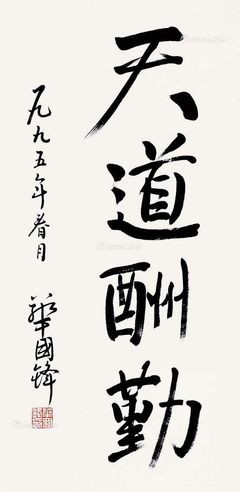 天道酬勤
一九九五年春月
華國鋒